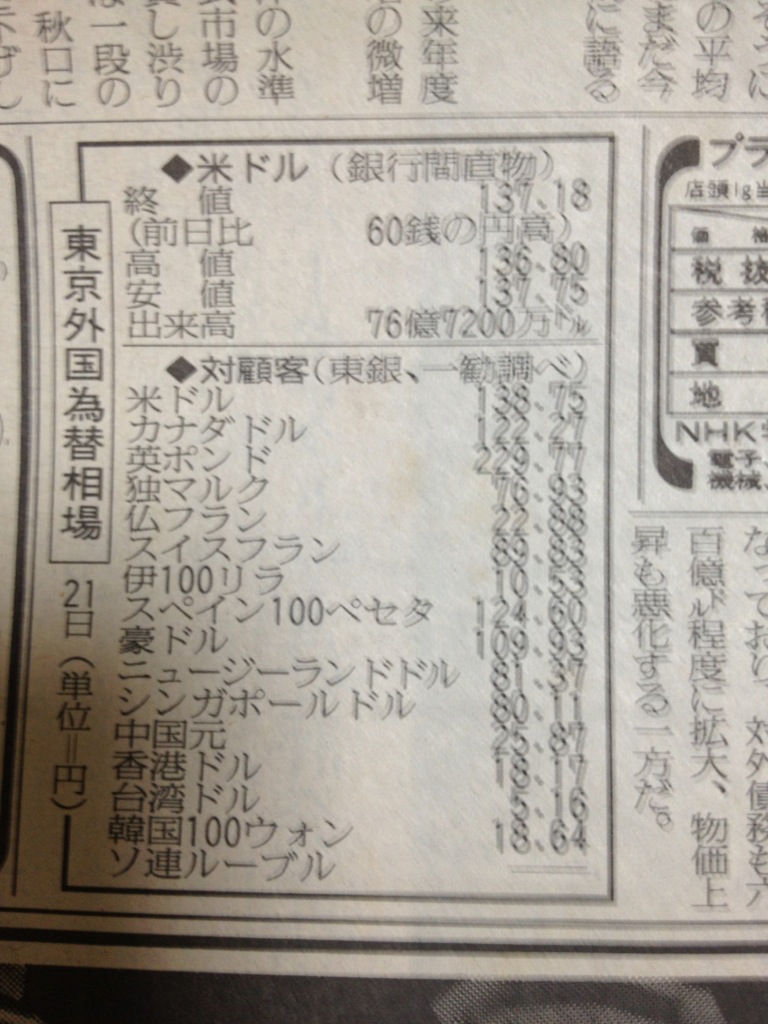 来年度
の微増
の水準
市場の
し渋り
一段の
秋口に
の平均
まだ今
に語る
東京外国為替相場
21日(単位=円)
◆米ドル(銀行間直物)
終値 137.18
(前日比 60銭の円高)
高値 136.80
安値 137.75
出来高 76億7200万ドル
◆対顧客(東銀、一勧調べ)
米ドル 138.75
カナダドル 122.27
英ポンド 229.77
独マルク 76.93
仏フラン 22.88
スイスフラン 89.83
伊100リラ 10.53
スペイン100ペセタ 124.60
豪ドル 109.93
ニュージーランドドル 81.37
シンガポールドル 80.11
中国元 25.87
香港ドル 18.17
台湾ドル 5.16
韓国100ウォン 18.64
ソ連ルーブル ――
プラ
店頭1g当
価格
税抜
参考
質
地
NHK
電子、
機械、
なっており、対外債務も六
百億ドル程度に拡大、物価上
昇も悪化する一方だ。